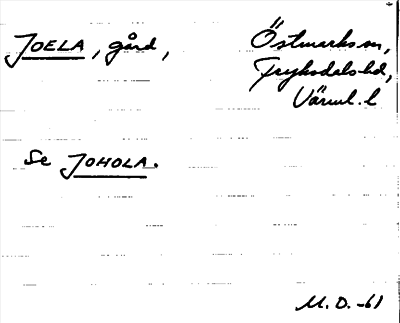 JOELA, gård, Östmarks sn,
Fryksdals hd,
Värml. l
Se JOHOLA.
M.D. -61